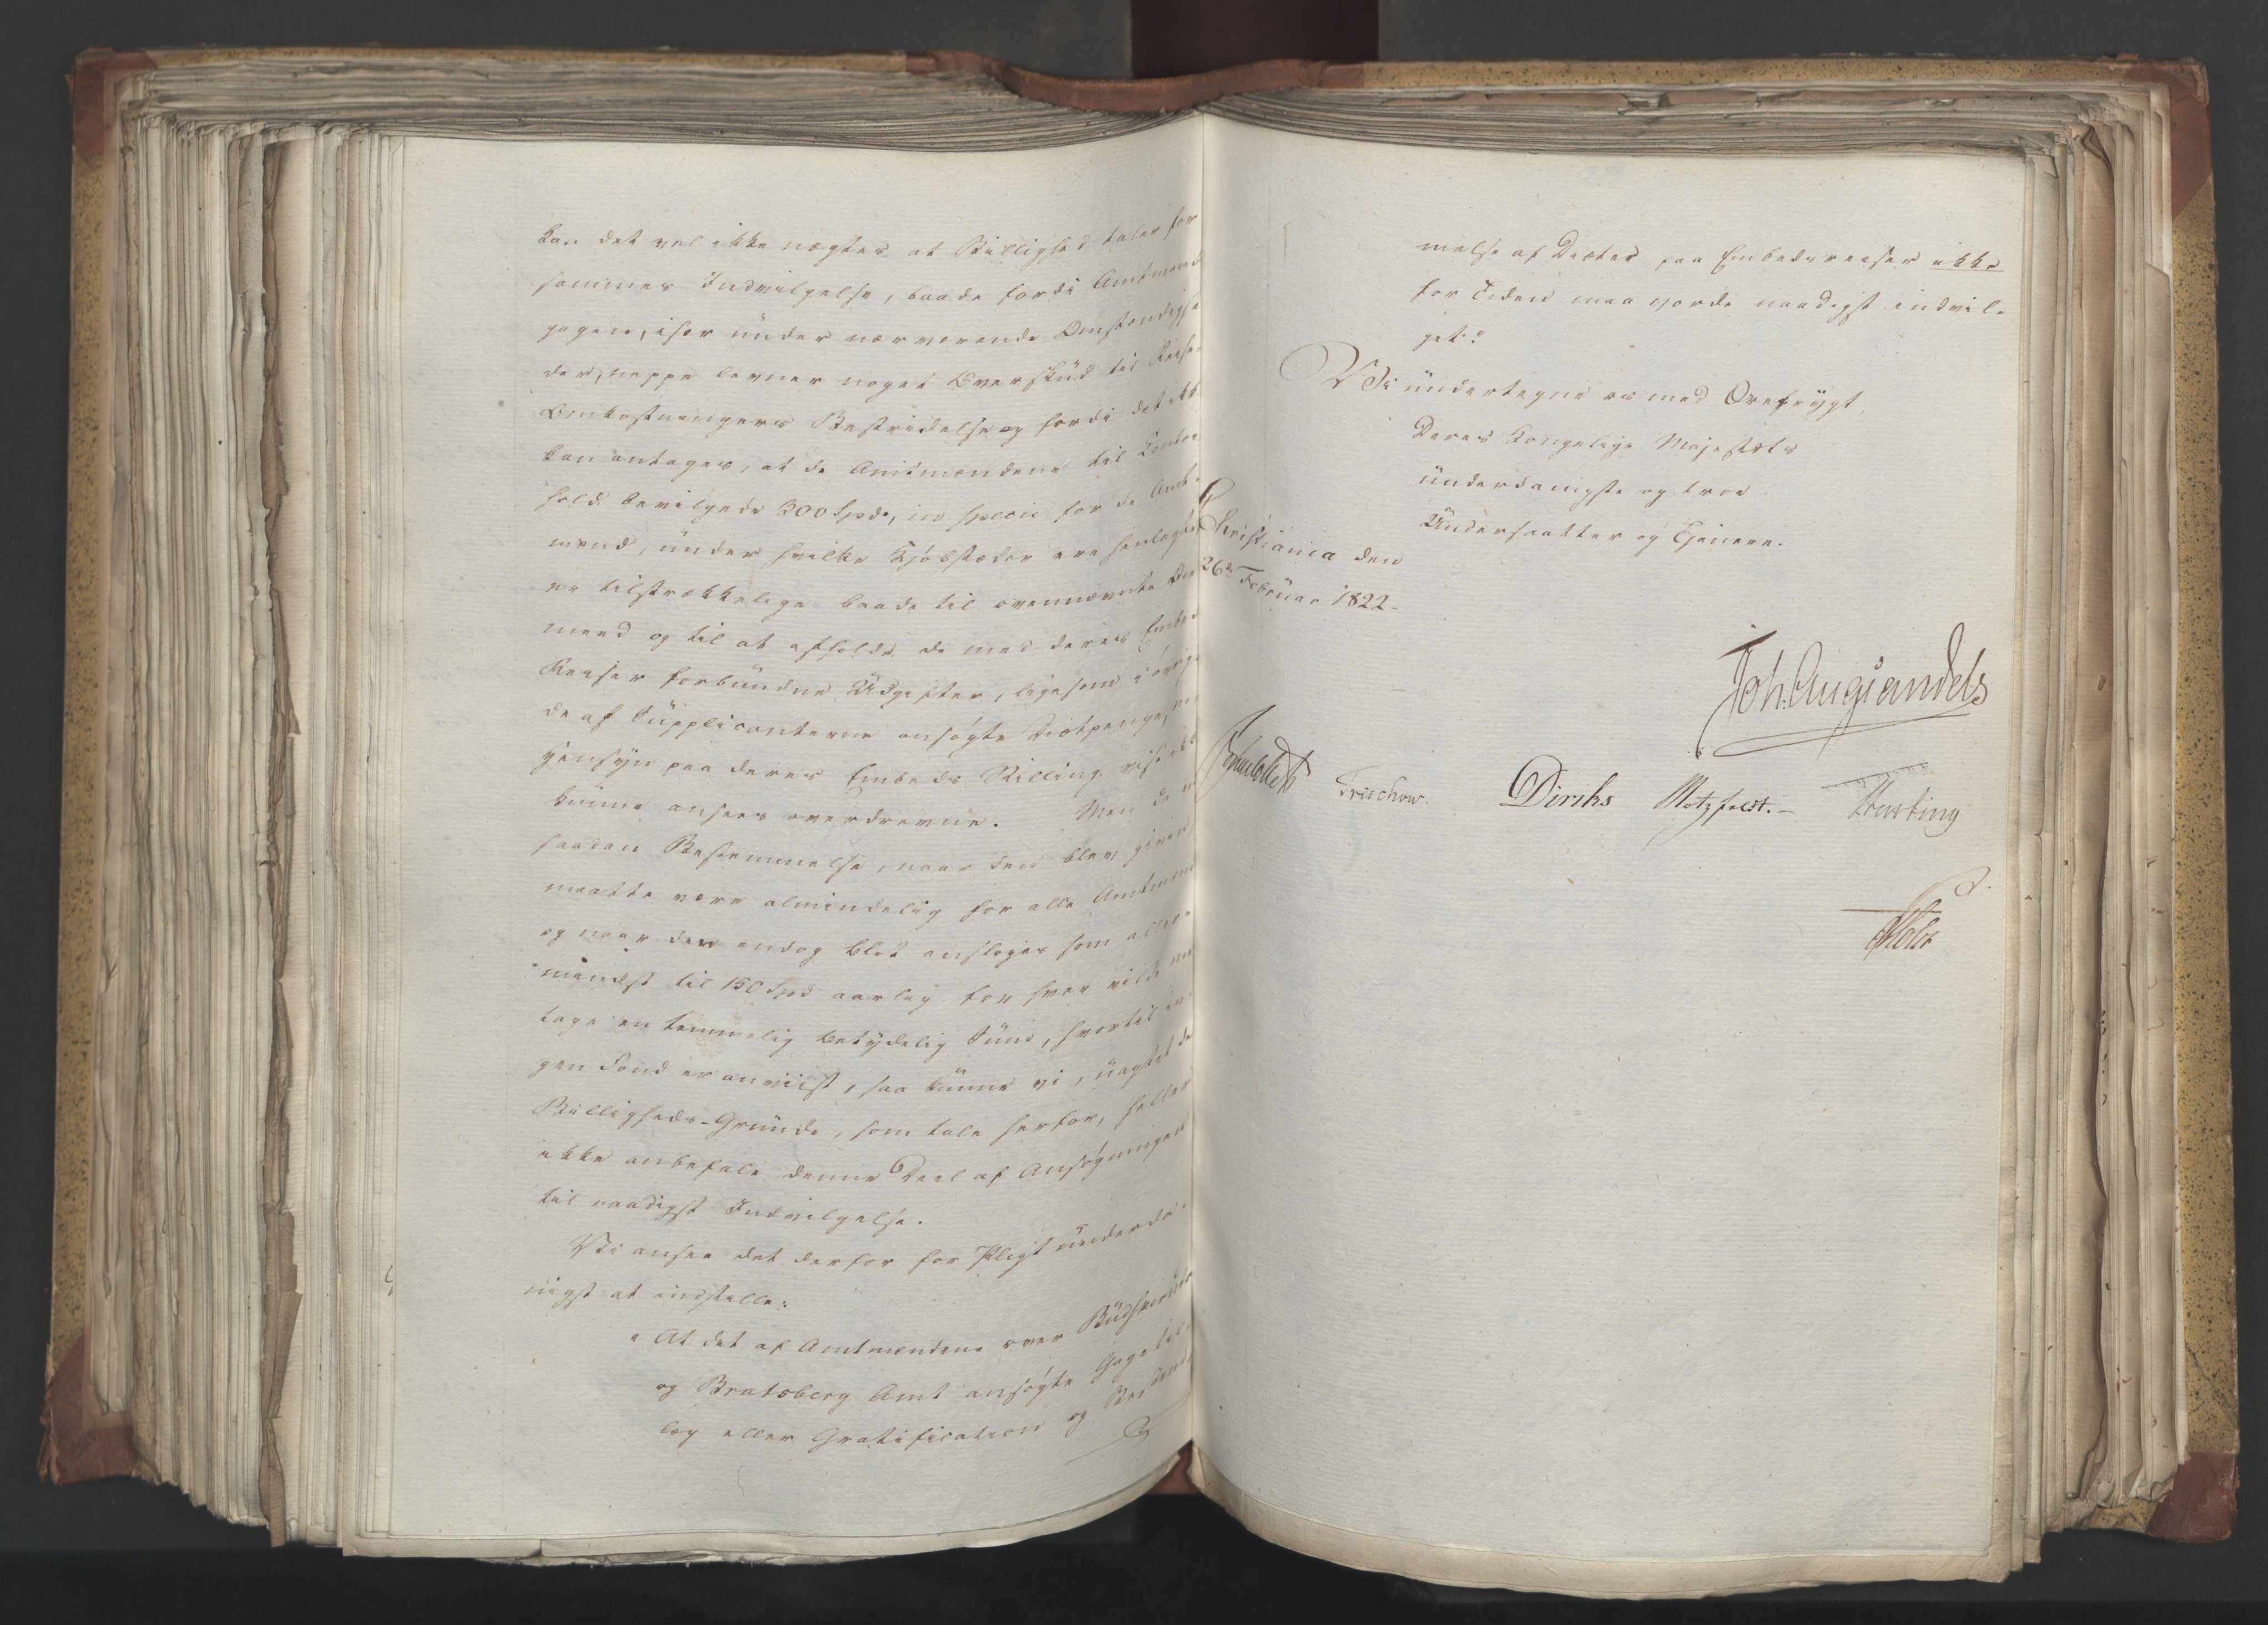 kan det vel ikke nægtes at Billighed taler for
sammes Indvilgelse, baade fordi Amtmand
gagen, især under nærværende Omstændighe
der, neppe levner noget Overskud til Reise
Omkostningers Bestridelse og fordi det ikk
kan antages, at de Amtmændene til Contoir
hold bevilgede 300 Spd, in specie for de Amt-
mænd, under hvilke Kjøbstæder ere henlagte
er tilstrækkelige baade til ovennævnte
meed og til at afholde de med deres Embed
Reiser forbundne Udgifter, ligesom i øvrigt
de af Supplicanterne ansøgte Diætpenge,
gensyn paa deres Embeds Stilling vist ikke
kunne ansees overdrevne. Men da en
saadan Bestemmelse, naar den blev given,
maatte være almindelig for alle Amtmænd
og naar den endog blot ansloges som aller-
mindst til 150 Spd aarlig for hver vilde med
tage en temmelig betydelig Sum, hvortil in-
gen Fond er anviist, saa kunne vi, uagtet de
Billigheds-Grunde, som tale herfor, heller
ikke anbefale denne Deel af Ansøgningen
til naadigst Indvilgelse.
Vi ansee det derfor for Pligt underda-
nigst at indstille:
"At det af Amtmændene over Budskeruds
og Bratsberg Amt ansøgte Gagetil-
læg eller Gratification og Bestem-
melse af Diæter paa Embedsreiser ikke
for Tiden maa vorde naadigst indvil-
get."
Vi undertegne os med Ærefrygt,
Deres Kongelige Majestæts
underdanigste og troe
Undersaatter og Tjenere.
Christiania den
26de Februar 1822-
Joh. Aug Sandels
JCollett Treschow. Diriks Motzfeldt.- Fasting
Holst